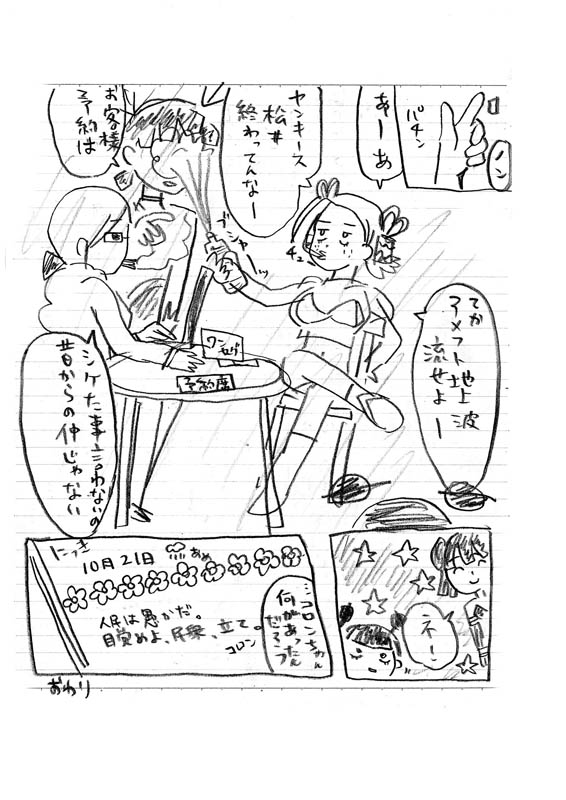 パチン
ノン
あーあ
ヤンキース
松井
終わってんなー
お客様
予約は
ブシャーッ
チュ
ワンセグ
予約席
てか
アメフト地上波
流せよー
シケた事言わないの
昔からの仲じゃない
ネーン
にっき
10月21日 あめ
人民は愚かだ。
目覚めよ、民衆、立て。
コロン
…コロンちゃん
何があったん
だろう?
おわり